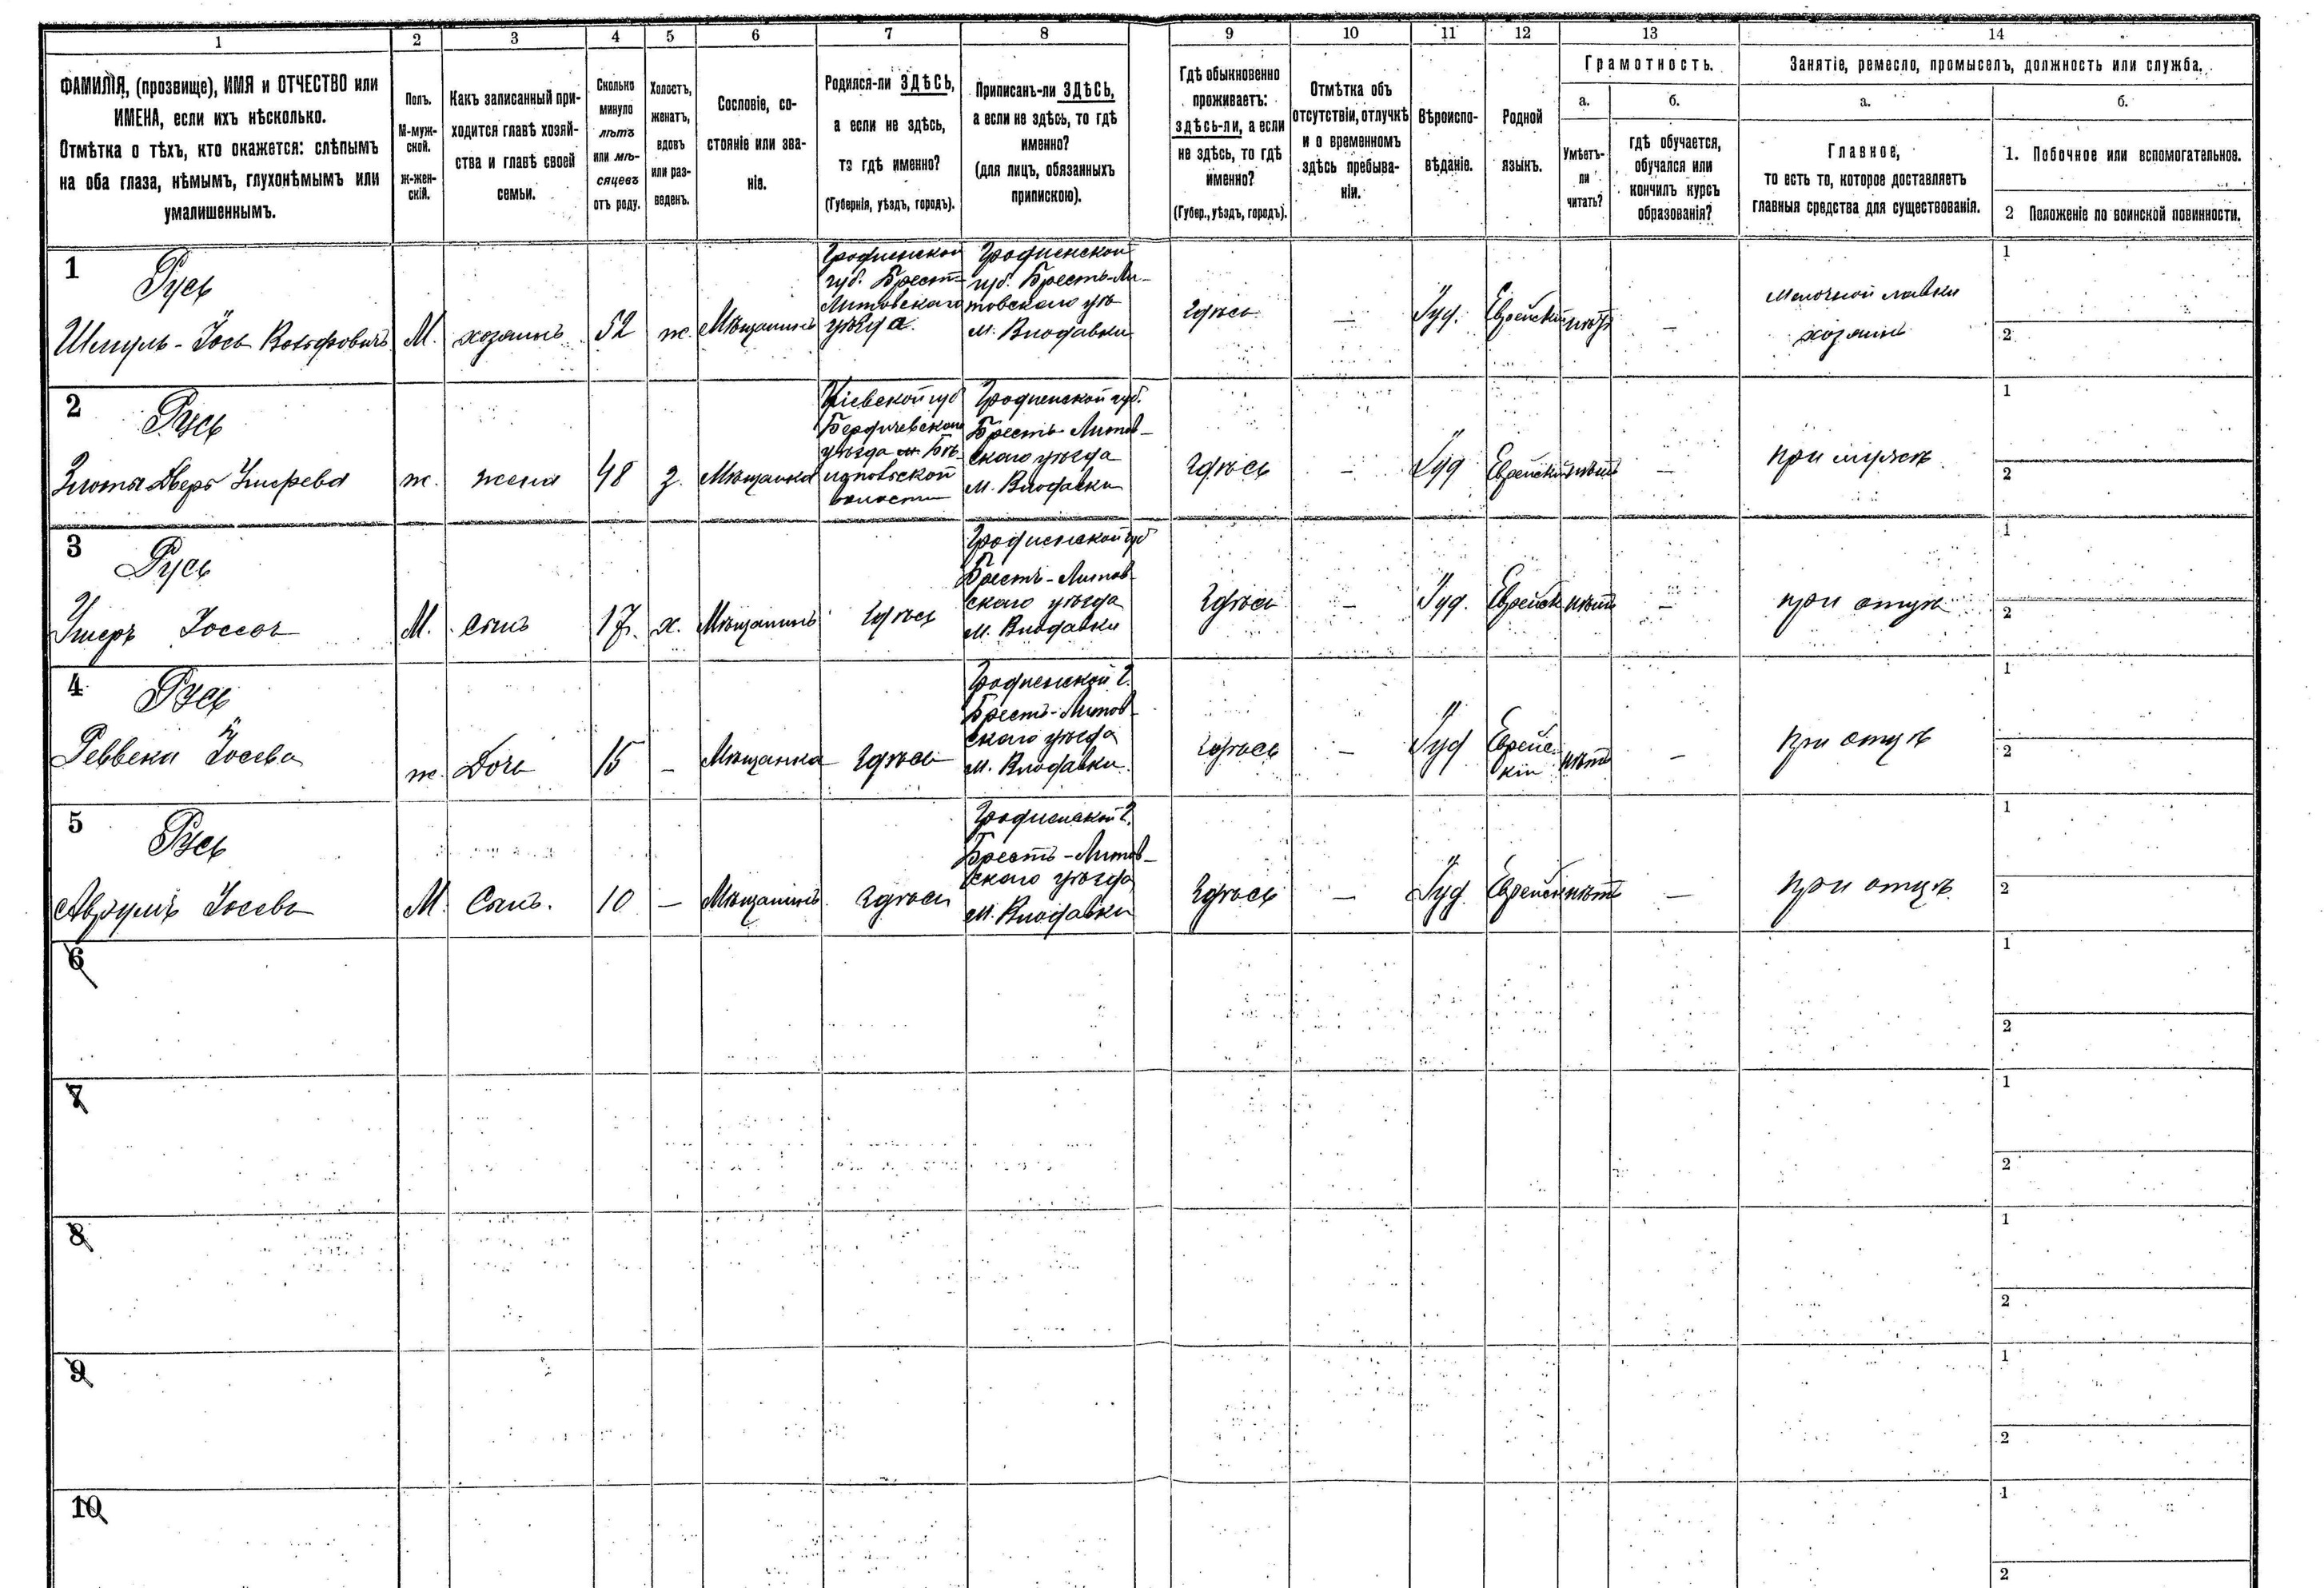 1 2 3 4 5 6 7 8 9 10 11 12 13 14
ФАМИЛІЯ, (прозвище), ИМЯ и ОТЧЕСТВО или
ИМЕНА, если ихъ нѣсколько.
Отмѣтка о тѣхъ, кто окажется: слѣпымъ
на оба глаза, нѣмымъ, глухонѣмымъ или
умалишеннымъ.
Полъ.
М-муж-
ской.
ж-жен-
скій.
Какъ записанный при-
ходится главѣ хозяй-
ства и главѣ своей
семьи.
Сколько
минуло
лѣтъ
или мѣ-
сяцевъ
отъ роду.
Холостъ,
женатъ,
вдовъ
или раз-
веденъ.
Сословіе, со-
стояніе или зва-
ніе.
Родился-ли ЗДѢСЬ,
а если не здѣсь,
тз гдѣ именно?
(Губернія, уѣздъ, городъ).
Приписанъ-ли ЗДѢСЬ,
а если не здѣсь, то гдѣ
именно?
(для лицъ, обязанныхъ
припискою).
Гдѣ обыкновенно
проживаетъ:
здѣсь-ли, а если
не здѣсь, то гдѣ
именно?
(Губер., уѣздъ, городъ).
Отмѣтка объ
отсутствіи, отлучкѣ
и о временномъ
здѣсь пребыва-
ніи.
Вѣроиспо-
вѣданіе.
Родной
языкъ.
Грамотность.
а.
Умѣетъ-
ли
читать?
б.
гдѣ обучается,
обучался или
кончилъ курсъ
образованія?
Занятіе, ремесло, промыселъ, должность или служба.
а.
Главное,
то есть то, которое доставляетъ
главныя средства для существованія.
б.
1. Побочное или вспомогательное.
2 Положеніе по воинской повинности.
1
Русь
Шмуль-Іось
М.
хозяинъ
52
ж.
Мѣщанинъ
Гродненской
губ. Брестъ-
Литовскаго
уѣзда.
Гродненской
губ. Брестъ-Ли-
товскаго уѣз
м. Влодавки
Здѣсь
—
Іуд.
Еврейскій
нѣтъ
—
Мелочной лавки
хозяинъ
1
2
2
Русь
ж.
жена
48
з.
Мѣщанка
Кіевской губ
Бердичевскаго
уѣзда
волости
Гродненской губ.
Брестъ-Литов-
скаго уѣзда
м. Влодавки
Здѣсь
—
Іуд
Еврейскій
нѣтъ
—
При мужѣ
1
2
3
Русь
Ушеръ
М.
сынъ
17.
х.
Мѣщанинъ
Здѣсь
Гродненской губ
Брестъ-Литов-
скаго уѣзда
м. Влодавки
Здѣсь
—
Іуд.
Еврейск
нѣтъ
—
при отцѣ
1
2
4
Русь
Реввека Іосева
ж.
Дочь
15
—
Мѣщанка
Здѣсь
Гродненской г.
Брестъ-Литов-
скаго уѣзда
м. Влодавки.
Здѣсь
—
Іуд
Еврейс-
кій
нѣтъ
—
При отцѣ
1
2
5
Русь
М.
Сынъ.
10
—
Мѣщанинъ.
Здѣсь
Гродненской г.
Брестъ-Литов-
скаго уѣзда
м. Влодавки
Здѣсь
—
Іуд.
Еврейск
нѣтъ
—
При отцѣ.
1
2
6
1
2
7
1
2
8
1
2
9
1
2
10
1
2